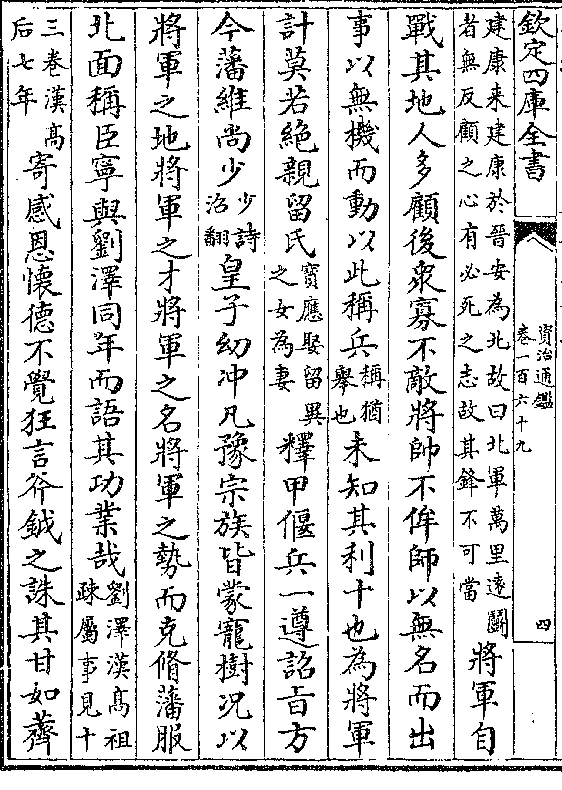 欽定四庫全書
資治通鑑
卷一百六十九
四
建康来建康於晉安為北故曰北軍萬里遠鬬
者無反顧之心有必死之志故其鋒不可當
將軍自
戰其地人多顧後衆寡不敵將帥不侔師以無名而出
事以無機而動以此稱兵
稱猶
舉也
未知其利十也為將軍
計莫若絶親留氏
寳應娶留異
之女為妻
釋甲偃兵一遵詔旨方
今藩維尚少
少詩
沼翻
皇子幼冲凡豫宗族皆蒙寵樹况以
將軍之地將軍之才將軍之名將軍之勢而克脩藩服
北面稱臣寧與劉澤同年而語其功業哉
劉澤漢髙祖
疎屬事見十
三巻漢髙
后七年
寄感恩懷德不覺狂言斧鉞之誅其甘如薺